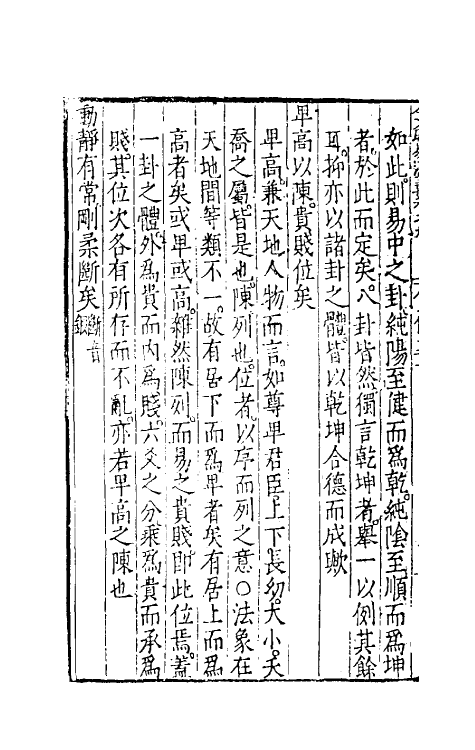 如此則易中之卦純陽至健而為乾純陰至順而為坤
者於此而定矣八卦皆然獨言乾坤者舉一以例其餘
耳抑亦以諸卦之體皆以乾坤合德而成歟
卑高以陳貴賤位矣
卑高兼天地人物而言如尊卑君臣上下長幼大小夭
喬之屬皆是也陳列也位者以序而列之意○法象在
天地間等類不一故有居下而為卑者矣有居上而為
高者矣或卑或高雜然陳列而易之貴賤即此位焉蓋
一卦之體外為貴而內為賤六爻之分乘為貴而承為
賤其位次各有所存而不亂亦若卑高之陳也
動靜有常剛柔斷矣斷音